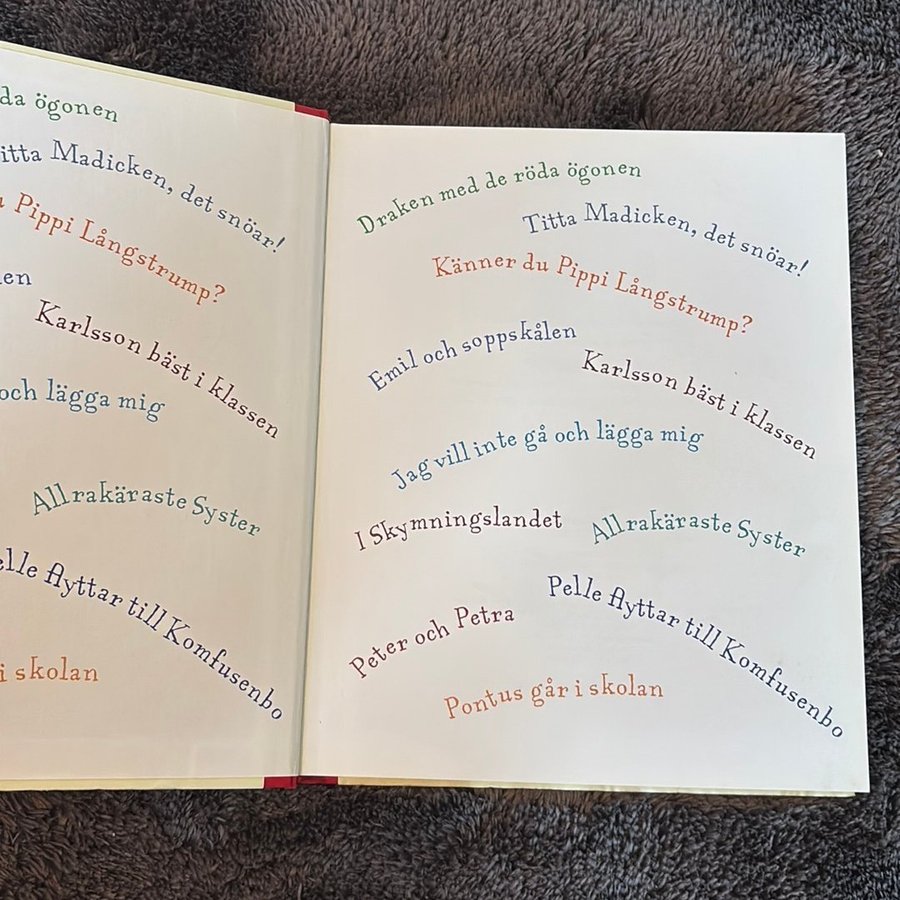 da ögonen
itta Madicken, det snöar!
Pippi Långstrump?
Karlsson bäst i klassen
och lägga mig
Allrakäraste Syster
elle flyttar till Komfusenbo
i skolan
Draken med de röda ögonen
Titta Madicken, det snöar!
Känner du Pippi Långstrump?
Emil och soppskålen
Karlsson bäst i klassen
Jag vill inte gå och lägga mig
I Skymningslandet
Allrakäraste Syster
Pelle flyttar till Komfusenbo
Peter och Petra
Pontus går i skolan